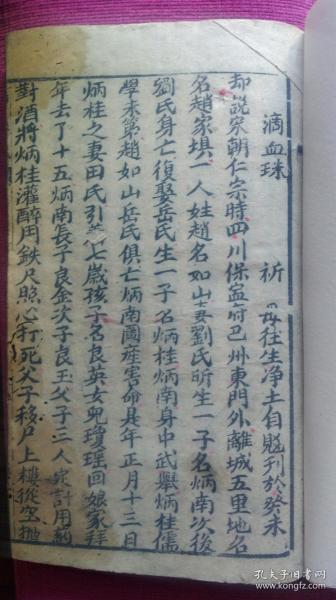 滴血珠　　祈　毋往生净土自贱刋於癸未
却説宋朝仁宗時四川保寍府巴州東門外離城五里地名
名趙家垻一人姓趙名如山妻劉氏所生一子名炳南次後
劉氏身亡復娶岳氏生一子名炳桂炳南身中武舉炳桂儒
學未第趙如山岳氏俱亡炳南圖産害命是年正月十三日
炳桂之妻田氏引七歲孩子名良英女兒瓊瑶回娘家拜
年去了十五炳南長子良金次子良玉父子三人定計用
對酒將炳桂灌醉用鉄尺照心打死父子移尸上樓從空抛
孔夫子旧书网
www.kongfz.com